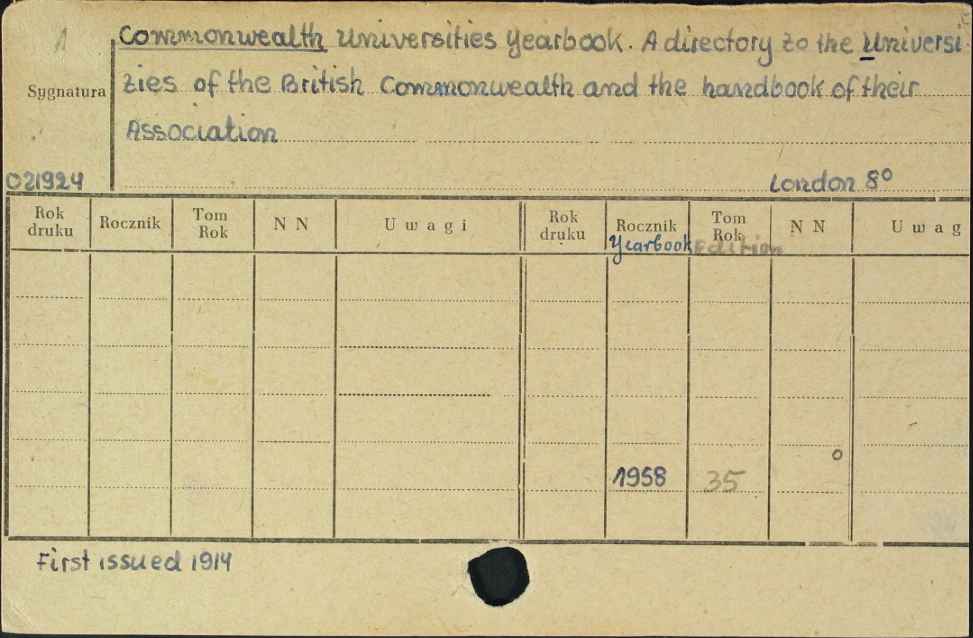 A
Commonwealth Universities Yearbook. A directory to the Universi
Sygnatura
ties of the British Commonwealth and the handbook of their
Association
021924
London 8°
Rok druku Rocznik Tom Rok N N Uwagi Rok druku Rocznik Tom Rok N N Uwag
Yearbook Edition
o
1958 35
First issued 1914